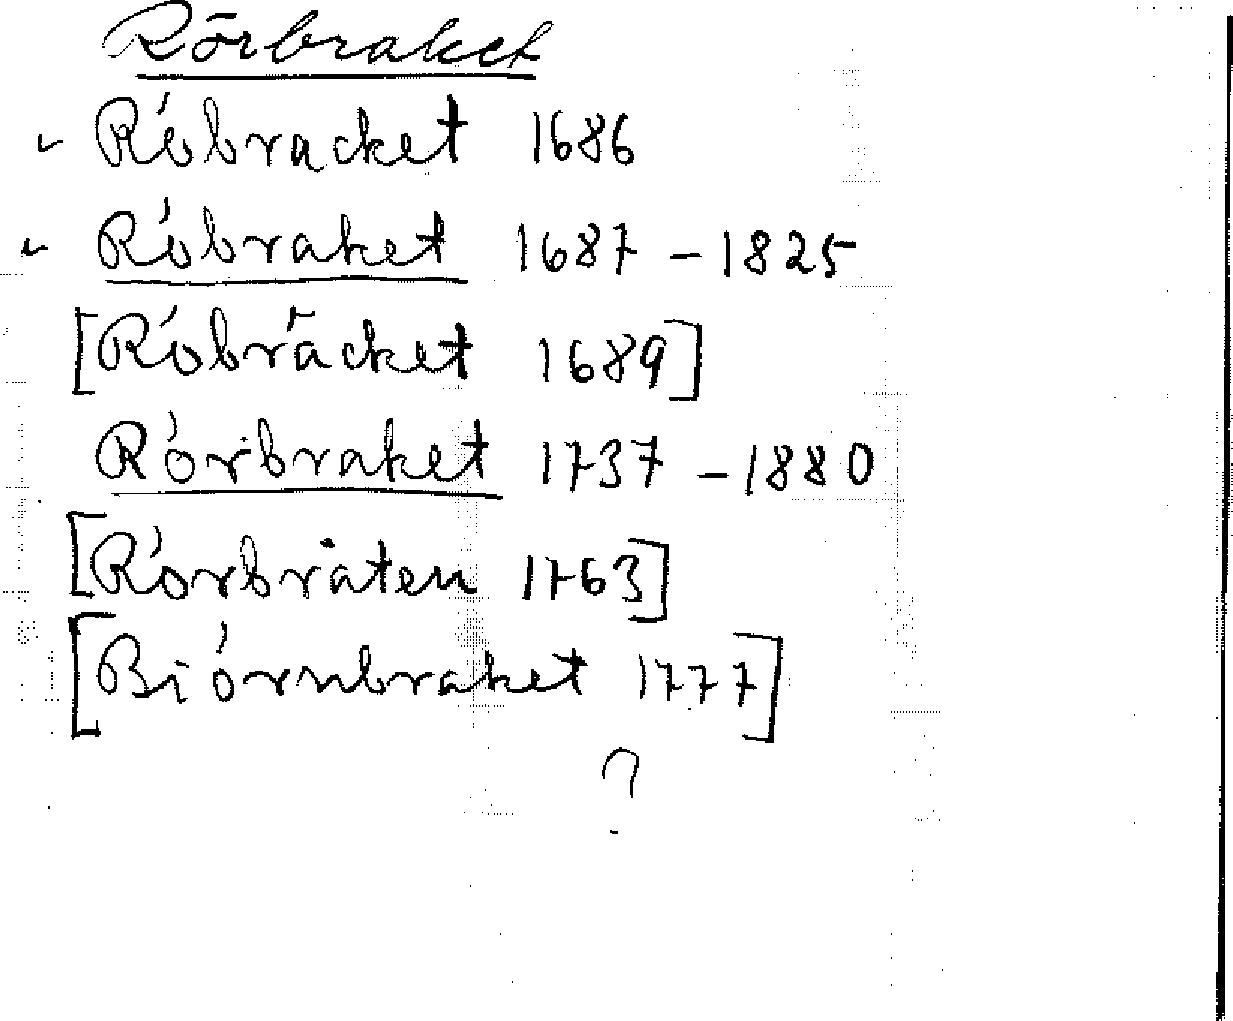 Rörbraket
✓ Róbracket 1686
✓ Róbraket 1687 – 1825
[Róbräcket 1689]
Rórbraket 1737 – 1880
[Rórbråten 1763]
[Biórnbraket 1777]
?